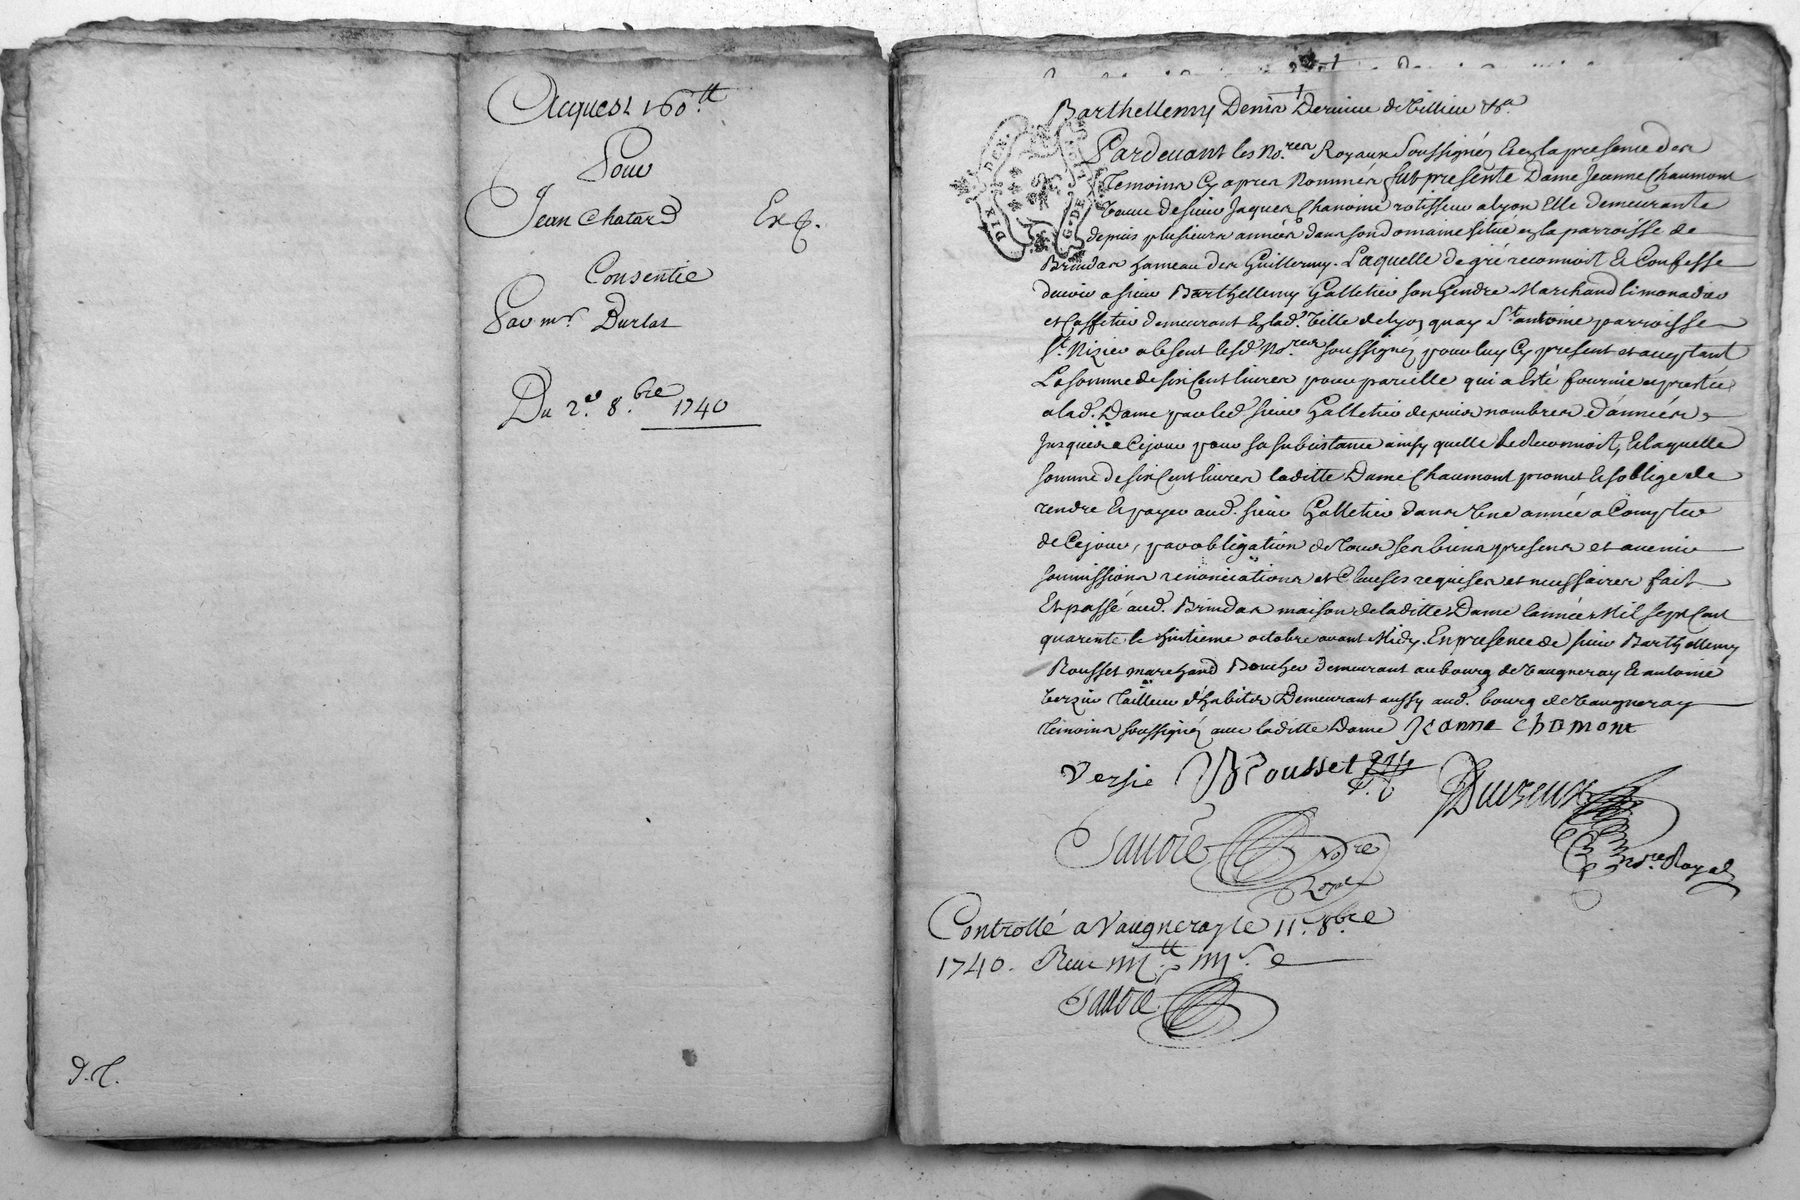 Acquest 160.tt
Pour
Jean Chatard Exp.
Consentie
Par mr. Burlat
Du 2.e 8.bre 1740
d. T.
Barthellemy Denis
Pardevant les No.res Royaux Soussignés Et en la presence des
Temoins Cy apres Nommés fut presente Dame Jeanne Chaumont
veuve de sieur Jaques Chanoine rotisseur a Lyon Elle demeurante
depuis plusieurs années dans son domaine situé en la parroisse de
Brindas hameau des Guillermy. Laquelle de gré reconnoit & Confesse
devoir a sieur Barthellemy Galletier son Gendre Marchand limonadier
et Caffetier demeurant En lad. Ville de Lyon quay St. antoine parroisse
St. Nizier absent lesd. No.res soussignés pour luy Cy present et acceptant
La somme de six Cent livres pour pareille qui a Esté fournie et prestée
a lad. Dame par led. sieur Galletier depuis nombres d'années
Jusques a Ce jour pour sa subsistance ainsy quelle Le Reconnoit, & laquelle
somme de six Cent livres laditte Dame Chaumont promet & s'oblige de
rendre & payer aud. sieur Galletier dans Une année a Compter
de Ce jour, par obligation de Tous ses biens presens et avenir
soumissions renonciations et Clauses requises et necessaires fait
Et passé aud. Brindas maison de laditte Dame l'année Mil sept Cent
quarente le huitieme octobre avant Midy. En presence de sieur Barthellemy
Rousset marchand Boucher demeurant au bourg de Vaugneray & antoine
Verzier Tailleur d'habits Demeurant aussy aud. bourg de Vaugneray
Temoins soussignés avec laditte Dame Jeanne chamont
Versie Rousset
Savoïe No.re Royal
No.re Royal
Controllé a Vaugneray le 11.e 8.bre
1740. Receu
Savoïe
DIX DEN. G. DE LYON